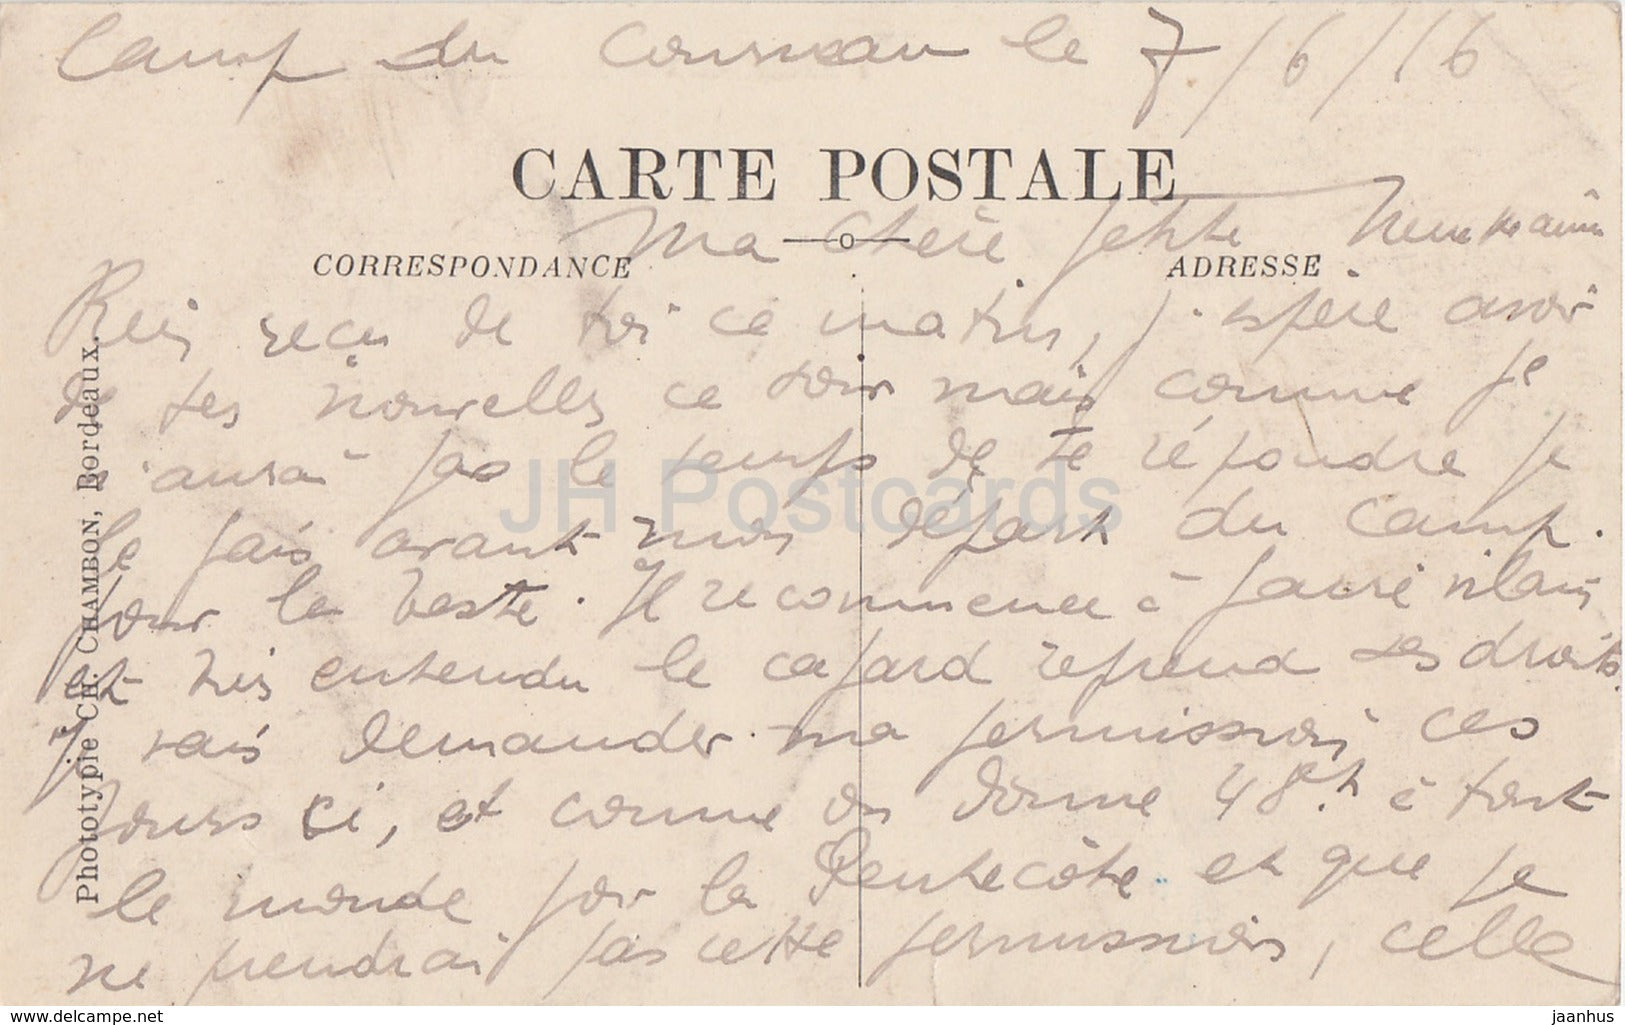 Camp du Courneau le 7/6/16
CARTE POSTALE
Ma chère petite
CORRESPONDANCE
ADRESSE
Rien reçu de toi ce matin, j'espère avoir
de tes nouvelles ce soir mais comme je
n'aurai pas le temps de te répondre je
le fais avant mon départ du camp.
pour la Teste. Il recommence à faire vilain
et bien entendu le cafard reprend ses droits.
Je vais demander ma permission ces
jours ci, et comme on donne 48h à tout
le monde pour la Pentecôte et que je
ne prendrai pas cette permission, celle
Phototypie CH. CHAMBON, Bordeaux.
JH Postcards
www.delcampe.net
jaanhus